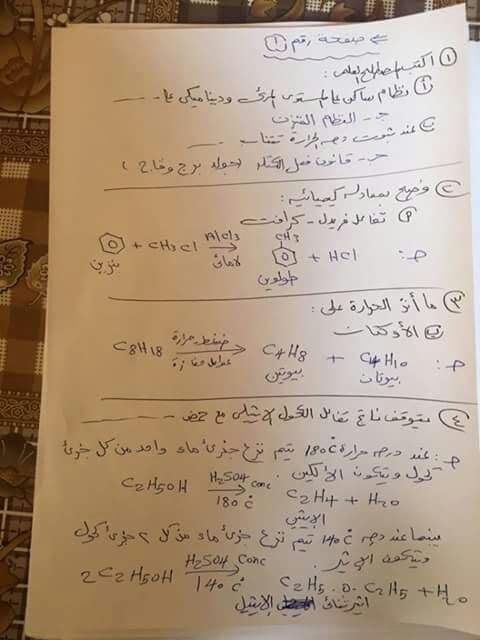 صفحة رقم (1)
(1) اكتب المصطلح العلمى:
(أ) نظام ساكن على المستوى المرئى وديناميكى على
ج - النظام المتزن
(ب) عند ثبوت درجة الحرارة تتناسب
ج - قانون فعل الكتلة (جولد برج وفاج)
(2) وضح بمعادلة كيميائية:
(أ) تفاعل فريدل - كرافت
ج: + CH3Cl AlCl3 لامائى CH3 + HCl
بنزين طولوين
(3) ما أثر الحرارة على:
الأوكتان
ج: C8H18 ضغط وحرارة عوامل حفازة C4H8 + C4H10
بيوتين بيوتان
(4) يتوقف ناتج تفاعل الكحول الإيثيلى مع حمض
ج: عند درجة حرارة 180°C يتم نزع جزئ ماء واحد من كل جزئ
كحول ويتكون الألكين.
C2H5OH H2SO4 conc 180°C C2H4 + H2O
الإيثين
بينما عند درجة 140°C يتم نزع جزئ ماء من كل 2 جزئ كحول
ويتكون الإيثر
2C2H5OH H2SO4 conc 140°C C2H5.O.C2H5 + H2O
اثير ثنائى الإيثيل